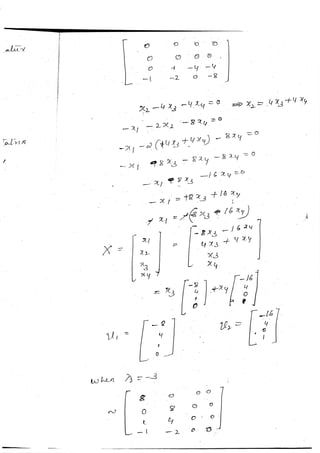 0 0 0 0
0 0 0 0
0 1 -4 -4
-1 -2 0 -8
x2 - 4x3 - 4x4 = 0 ⇒ x2 = 4x3 + 4x4
-x1 - 2x2 - 8x4 = 0
-x1 - 2(4x3 + 4x4) - 8x4 = 0
-x1 - 8x3 - 8x4 - 8x4 = 0
-x1 - 8x3 - 16x4 = 0
-x1 = +8x3 + 16x4
x1 = -(8x3 + 16x4)
X = [x1 x2 x3 x4] = [-8x3 - 16x4 4x3 + 4x4 x3 x4]
= x3 [-8 4 1 0] + x4 [-16 4 0 1]
u1 = [-8 4 1 0] u2 = [-16 4 0 1]
when λ = -3
8 0 0 0
~ 0 8 0 0
1 4 0 0
-1 -2 0 0